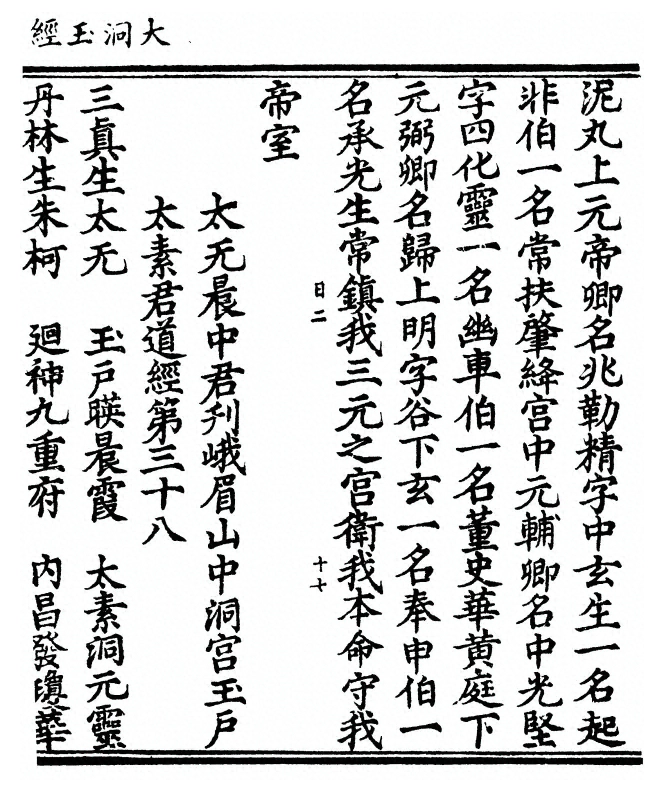 大洞玉經
泥丸上元帝卿名兆勒精字中玄生一名起
非伯一名常扶肇絳宮中元輔卿名中光堅
字四化靈一名幽車伯一名董史華黄庭下
元弼卿名歸上明字谷下玄一名奉申伯一
名承光生常鎮我三元之宮衛我本命守我
日二
十七
帝室
太无晨中君刋峨眉山中洞宫玉戶
太素君道經第三十八
三眞生太无　玉戶暎晨霞　太素洞元靈
丹林生朱柯　廻神九重府　內昌發瓊華